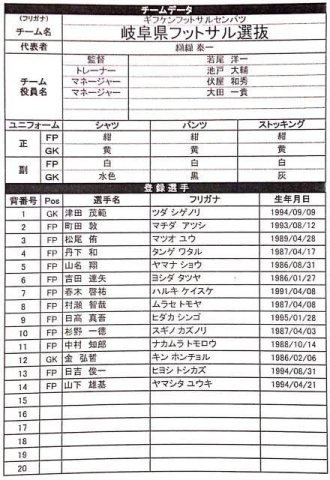 チームデータ
(フリガナ) ギフケンフットサルセンバツ
チーム名 岐阜県フットサル選抜
代表者 纐纈 泰一
チーム役員名
監督 若尾 洋一
トレーナー 池戸 大輔
マネージャー 伏屋 和秀
マネージャー 大田 一貴
ユニフォーム シャツ パンツ ストッキング
正 FP 紺 紺 紺
GK 黄 黄 黄
副 FP 白 白 白
GK 水色 黒 灰
登録選手
背番号 Pos 選手名 フリガナ 生年月日
1 GK 津田 茂範 ツダ シゲノリ 1994/09/09
2 FP 町田 敦 マチダ アツシ 1993/08/12
3 FP 松尾 侑 マツオ ユウ 1989/04/28
4 FP 丹下 和 タンゲ ワタル 1987/04/17
5 FP 山名 翔 ヤマナ ショウ 1986/08/31
6 FP 吉田 達矢 ヨシダ タツヤ 1986/01/27
7 FP 春木 啓祐 ハルキ ケイスケ 1991/04/08
8 FP 村瀬 智哉 ムラセ トモヤ 1987/04/08
9 FP 日高 真吾 ヒダカ シンゴ 1995/01/28
10 FP 杉野 一徳 スギノ カズノリ 1987/04/03
11 FP 中村 知郎 ナカムラ トモロウ 1988/10/14
12 GK 金 弘晢 キン ホンチョル 1986/02/06
13 FP 日吉 俊一 ヒヨシ トシカズ 1994/08/31
14 FP 山下 雄基 ヤマシタ ユウキ 1994/04/21
15
16
17
18
19
20